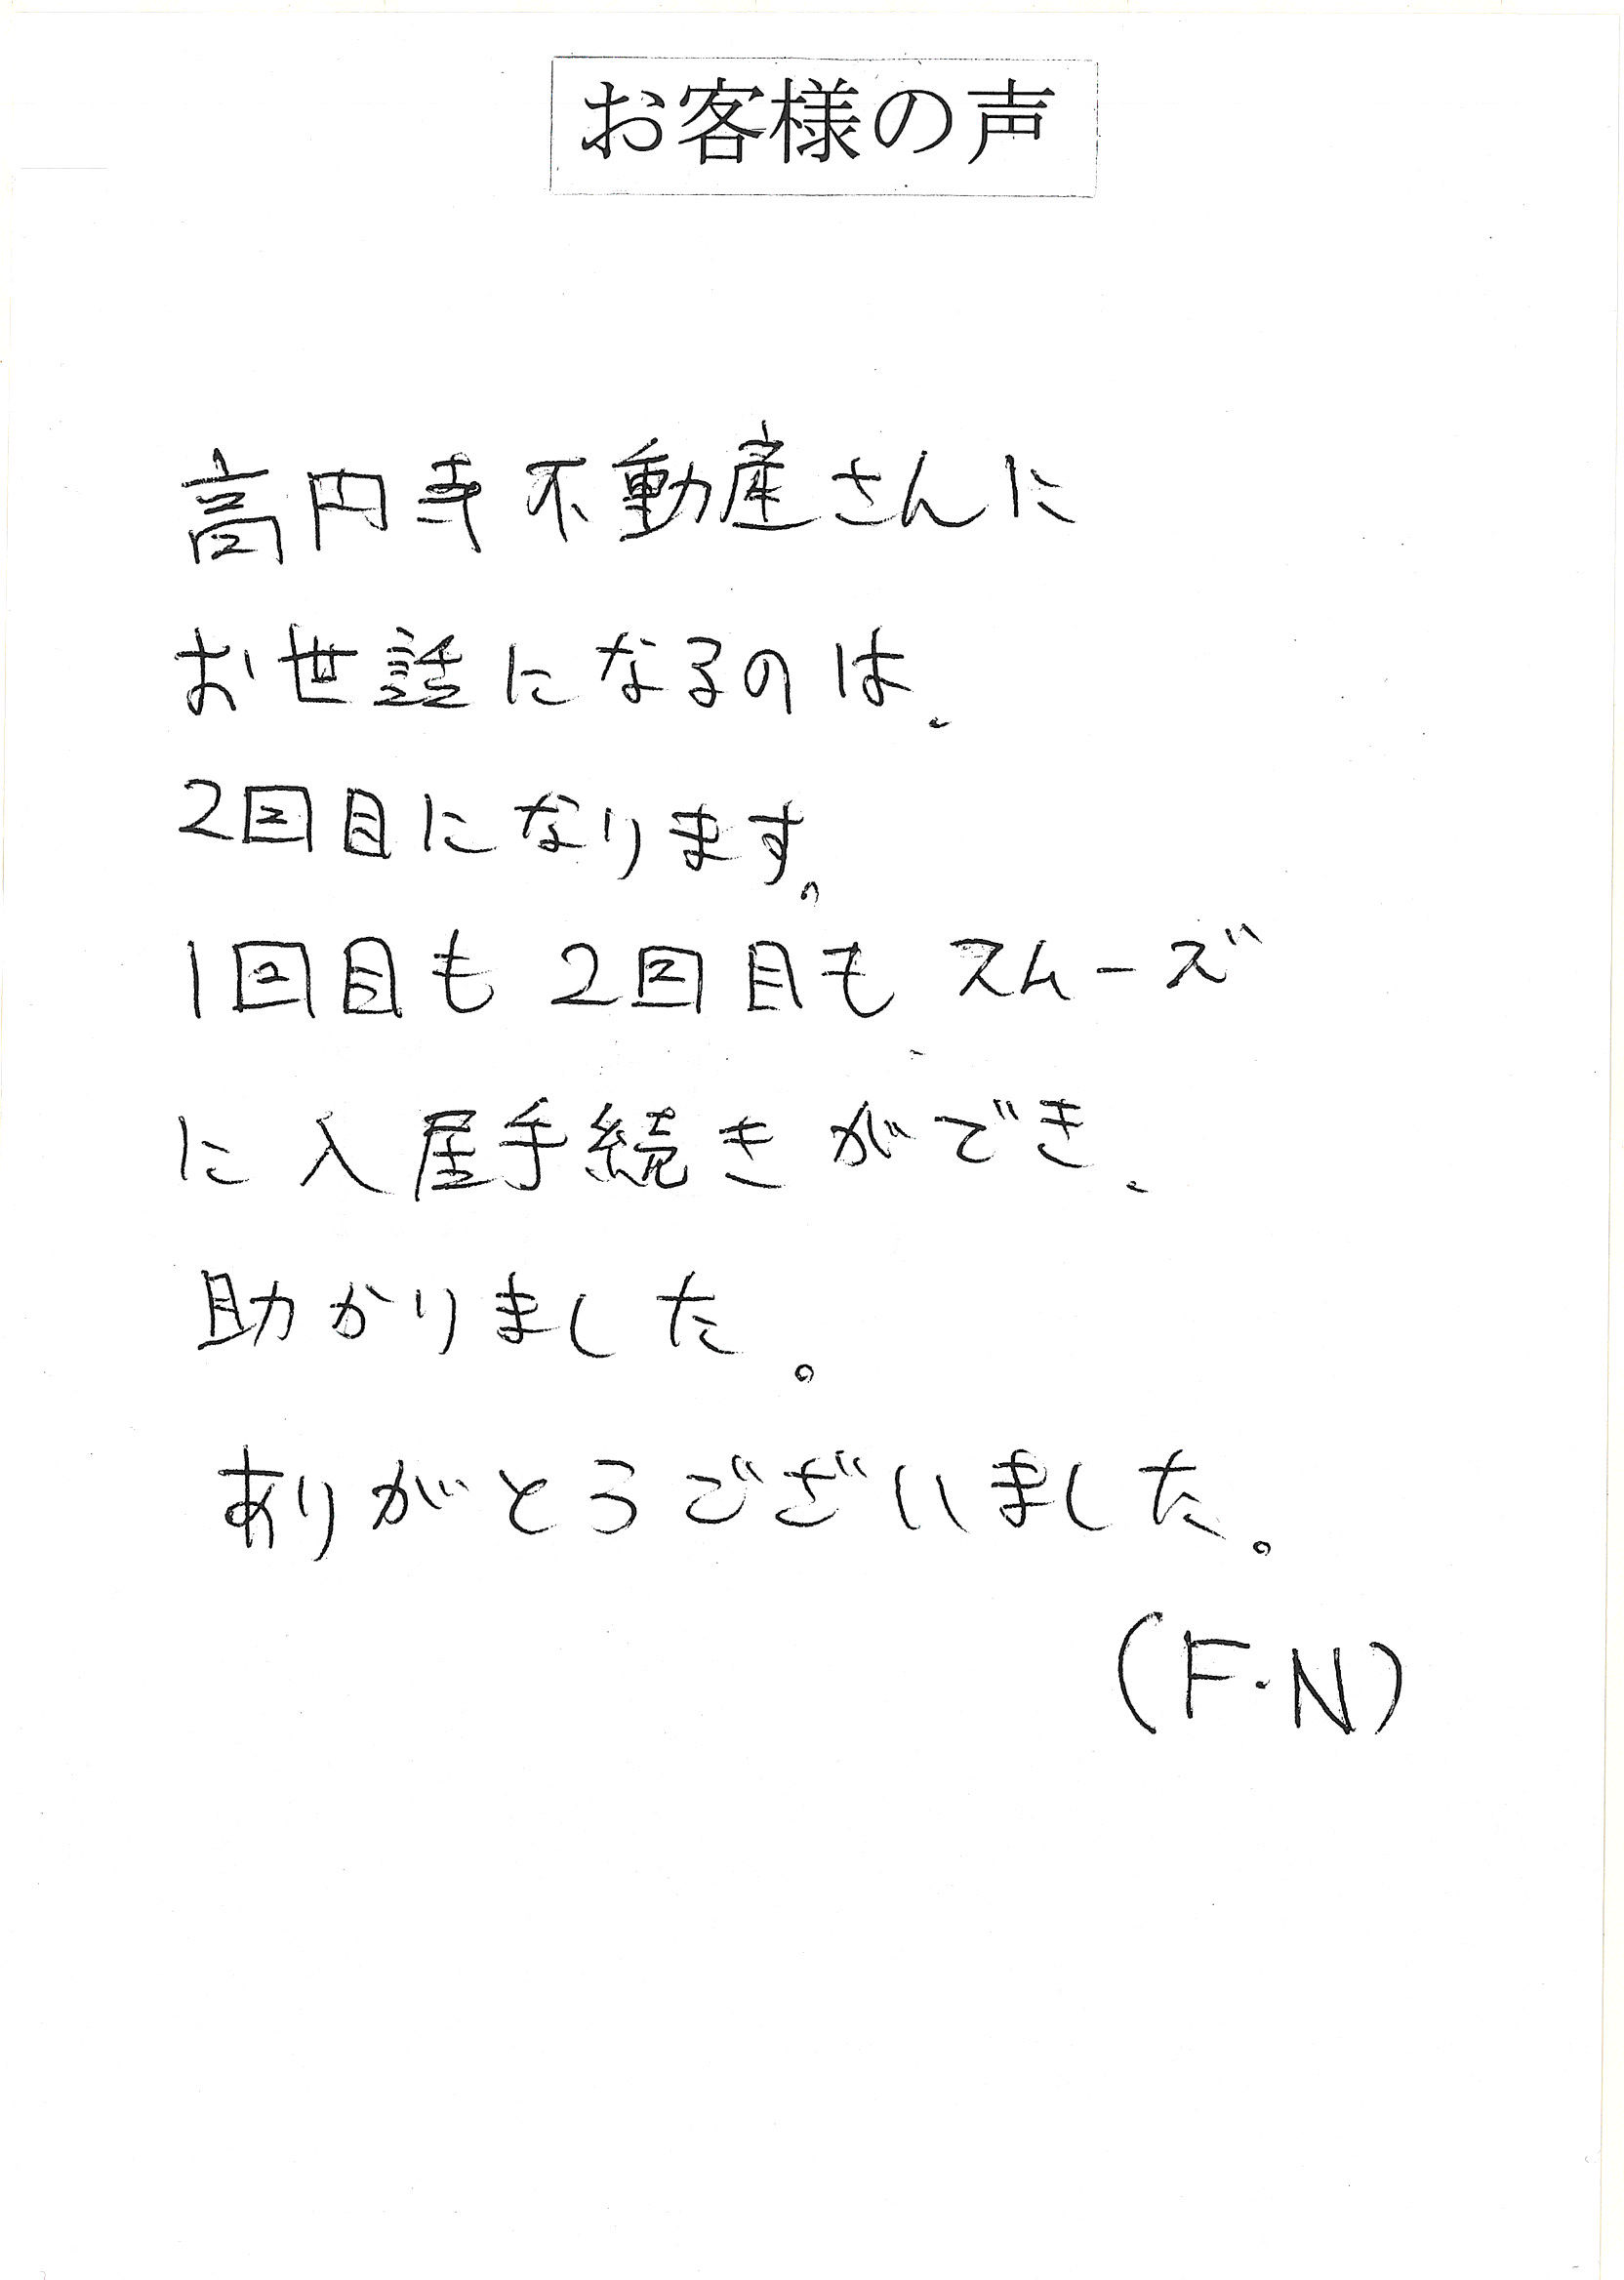 お客様の声
高円寺不動産さんに
お世話になるのは、
2回目になります。
1回目も2回目もスムーズ
に入居手続きができ、
助かりました。
ありがとうございました。
(F.N)